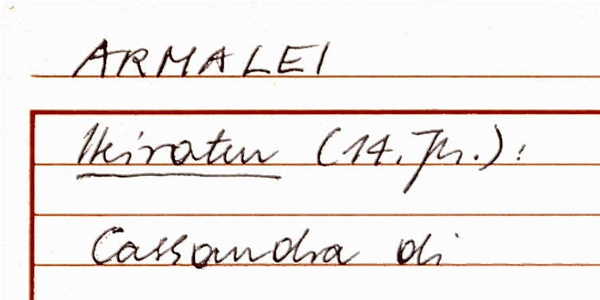 ARMALEI
Heiraten (14. Jh.):
Cassandra di